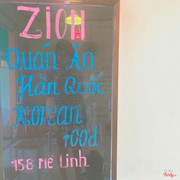 ZION
Quán Ăn
Hàn Quốc
Korean
Food
158 Mê Linh